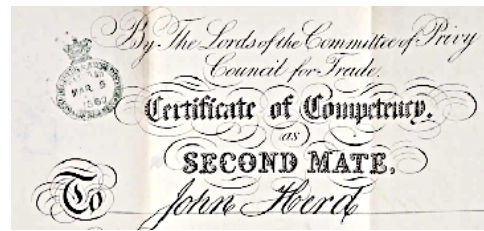 By The Lords of the Committee of Privy
Council for Trade.
MAR 5
Certificate of Competency.
as
SECOND MATE,
To John Herd